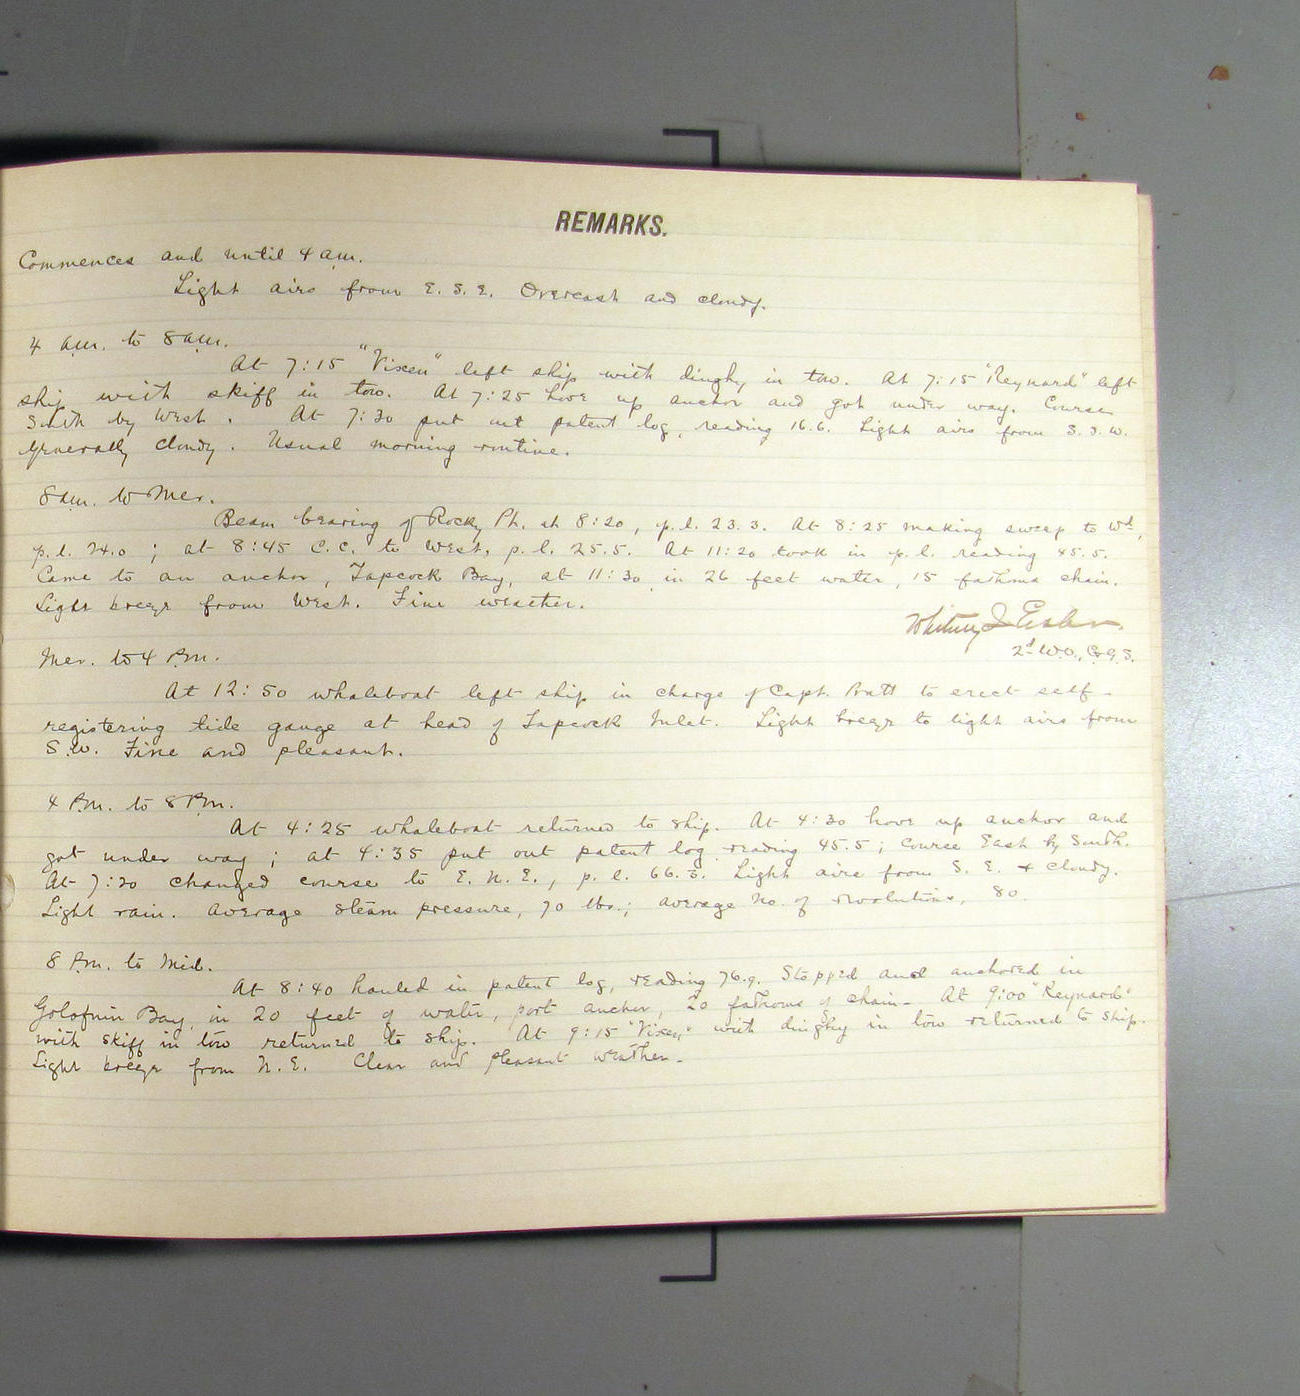 REMARKS.
Commences and until 4 a.m.
Light airs from E. S. E. Overcast and cloudy.
4 a.m. to 8 a.m.
At 7:15 "Vixen" left ship with dinghy in tow. At 7:15 "Reynard" left
ship with skiff in tow. At 7:25 hove up anchor and got under way. Course
South by West. At 7:30 put out patent log, reading 16.6. Light airs from S. S. W.
Generally cloudy. Usual morning routine.
8 a.m. to Mer.
Beam bearing of Rocky Pt. at 8:20, p. l. 23.3. At 8:25 making sweep to Wd,
p. l. 24.0; at 8:45 C. C. to West, p. l. 25.5. At 11:20 took in p. l. reading 45.5.
Came to an anchor, Tapcock Bay, at 11:30 in 26 feet water, 15 fathoms chain.
Light breeze from West. Fine weather.
Whitney I Eisler.
2d W.O., C&G.S.
Mer. to 4 P.m.
At 12:50 whaleboat left ship in charge of Capt. Pratt to erect self-
registering tide gauge at head of Tapcock Inlet. Light breeze to light airs from
S.W. Fine and pleasant.
4 P.m. to 8 P.m.
At 4:25 whaleboat returned to ship. At 4:30 hove up anchor and
got under way; at 4:35 put out patent log reading 45.5; course East by South.
At 7:20 changed course to E. N. E., p. l. 66.5. Light airs from S. E. & cloudy.
Light rain. Average steam pressure, 70 lbs.; average No. of revolutions, 80.
8 P.m. to Mid.
At 8:40 hauled in patent log, reading 76.9. Stopped and anchored in
Golofnin Bay, in 20 feet of water, port anchor, 20 fathoms of chain. At 9:00 "Reynard"
with skiff in tow returned to ship. At 9:15 "Vixen" with dinghy in tow returned to ship.
Light breeze from N. E. Clear and pleasant weather.